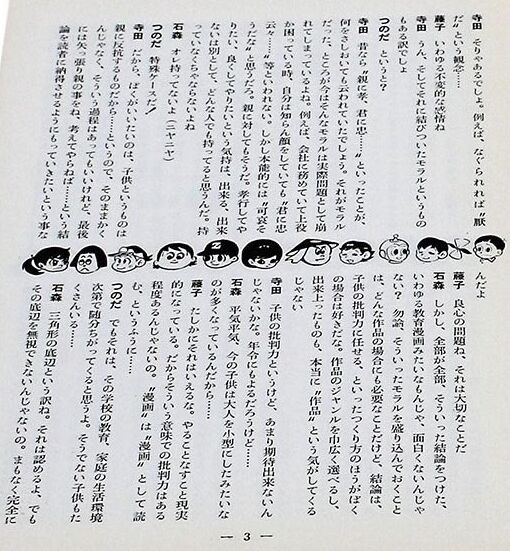 寺田　そりゃあるでしょ。例えば、なぐられれば〝厭
だ〟という観念……
藤子　いわゆる不変的な感情ね
寺田　うん、そしてそれに結びついたモラルというもの
もある訳でしょ
つのだ　というと？
寺田　昔なら〝親に孝、君に忠……〟といったことが、
何をさしおいても云われていたでしょう。それがモラル
だった、ところが今はそんなモラルは実際問題として崩
れてしまっているよね。例えば、会社に務めていて上役
か困っている時、自分は知らん顔をしていても〝君に忠
云々……〟等といわれない。しかし本能的には〝可哀そ
うだな〟と思うだろ。親に対してもそうだ。孝行してや
りたい、良くしてやりたいという気持は、出来る、出来
ないは別として、どんな人でも持ってると思うんだ。持
っていなくちゃならないよね
石森　オレ持ってないよ（ニヤニヤ）
つのだ　特殊ケースだ！
寺田　だから、ぼくがいいたいのは、子供というものは
親に反抗するものだから……というので、そのままかく
んじゃなく、そういう過程はあってもいいけれど、最後
には矢っ張り親の事をね、考えてやらねば……という結
論を読者に納得させるようにもっていきたいという事な
んだよ
藤子　良心の問題ね、それは大切なことだ
石森　しかし、全部が全部、そういった結論をつけた、
いわゆる教育漫画みたいなもんじゃ、面白くないんじゃ
ない？　勿論、そういったモラルを盛り込んでおくこと
は、どんな作品の場合にも必要なことだけど、結論は、
子供の批判力に任せる、といったつくり方のほうがぼく
の場合は好きだな。作品のジャンルを巾広く選べるし、
出来上ったものも、本当に〝作品〟という気がしてくる
じゃない
寺田　子供の批判力というけど、あまり期待出来ないん
じゃないかな。年令にもよるだろうけど……
石森　平気平気、今の子供は大人を小型にしたみたいな
のが多くなっているんだから……
藤子　たしかにそれはいえるな。やることなすこと現実
的になっている。だからそういう意味での批判力はある
程度あるんじゃないの。〝漫画〟は〝漫画〟として読
む、というように……
つのだ　でもそれは、その学校の教育、家庭の生活環境
次第で随分ちがってくると思うよ。そうでない子供もた
くさんいる……
石森　三角形の底辺という訳ね。それは認めるよ、でも
その底辺を無視できないんじゃないの。まもなく完全に
— 3 —